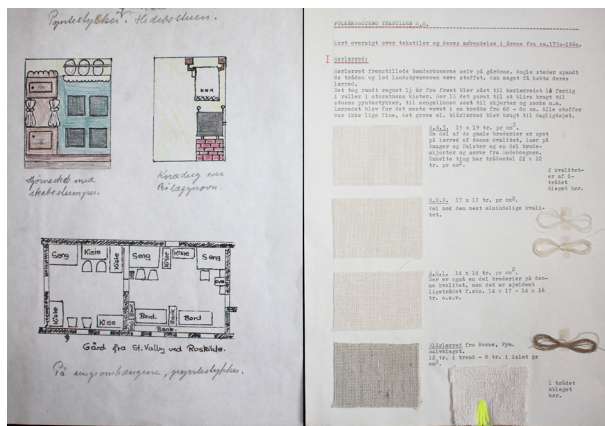 Pyntestykker. Hedebostuen.
Hjørneskab med
skabsstumper.
Knædug over
Bilæggerovn.
Seng
Kiste
Seng
Kiste
Seng
Kiste
Kiste
Kiste
Bord
Bord
Bænk
Gård fra St. Valby ved Roskilde.
På
FOLKEDRAGTENS TEKSTILER m.m.
Kort oversigt over tekstiler og deres anvendelse i årene fra ca.1750-1860.
Hørlærred:
Hørlærred fremstillede bønderkonerne selv på gårdene. Nogle steder spandt
de tråden og lod landsbyvæveren væve stoffet. Man søgte få købte deres
lærred.
Det tog rundt regnet 1½ år fra frøet blev sået til hørlærredet lå færdig
i ruller i storstuens kister. Her lå det parat til at blive brugt til
stuens pyntestykker, til sengelinned samt til skjorter og særke m.m.
Lærredet blev for det meste vævet i en bredde fra 60 - 80 cm. Alle stoffer
var ikke lige fine, det grove el. blårlærred blev brugt til dagligtøjet.
19 x 19 tr. pr cm².
En del af de gamle broderier er syet
på lærred af denne kvalitet, især på
Amager og Falster og en del brude-
skjorter og særke fra Hedeboegnen.
Enkelte ting har trådantal 22 x 22
tr. pr cm².
2 kvalitet-
er af 1-
trådet
bleget hør.
17 x 17 tr. pr cm².
Vel nok den mest almindelige kvali-
tet.
14 x 14 tr. pr cm².
Her er også en del broderier på den-
ne kvalitet, men det er sjældent
ligetrådet f.eks. 14 x 17 - 14 x 16
tr. o.s.v.
Blårlærred fra Horne, Fyn.
Halvbleget.
12 tr. i trend - 8 tr. i islæt pr
cm².
1 trådet
ubleget
hør.